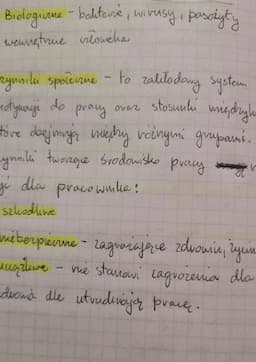 Biologiczne - bakterie, wirusy, pasożyty
wewnętrzne człowieka
czynniki społeczne - to zakładowy system
motywacji do pracy oraz stosunki między
które dotyczą między różnymi grupami.
czynniki tworzące środowisko pracy
dla pracownika:
szkodliwe
niebezpieczne - zagrażające zdrowiu, życiu
uciążliwe - nie stanowi zagrożenia dla
zdrowia ale utrudniają pracę.